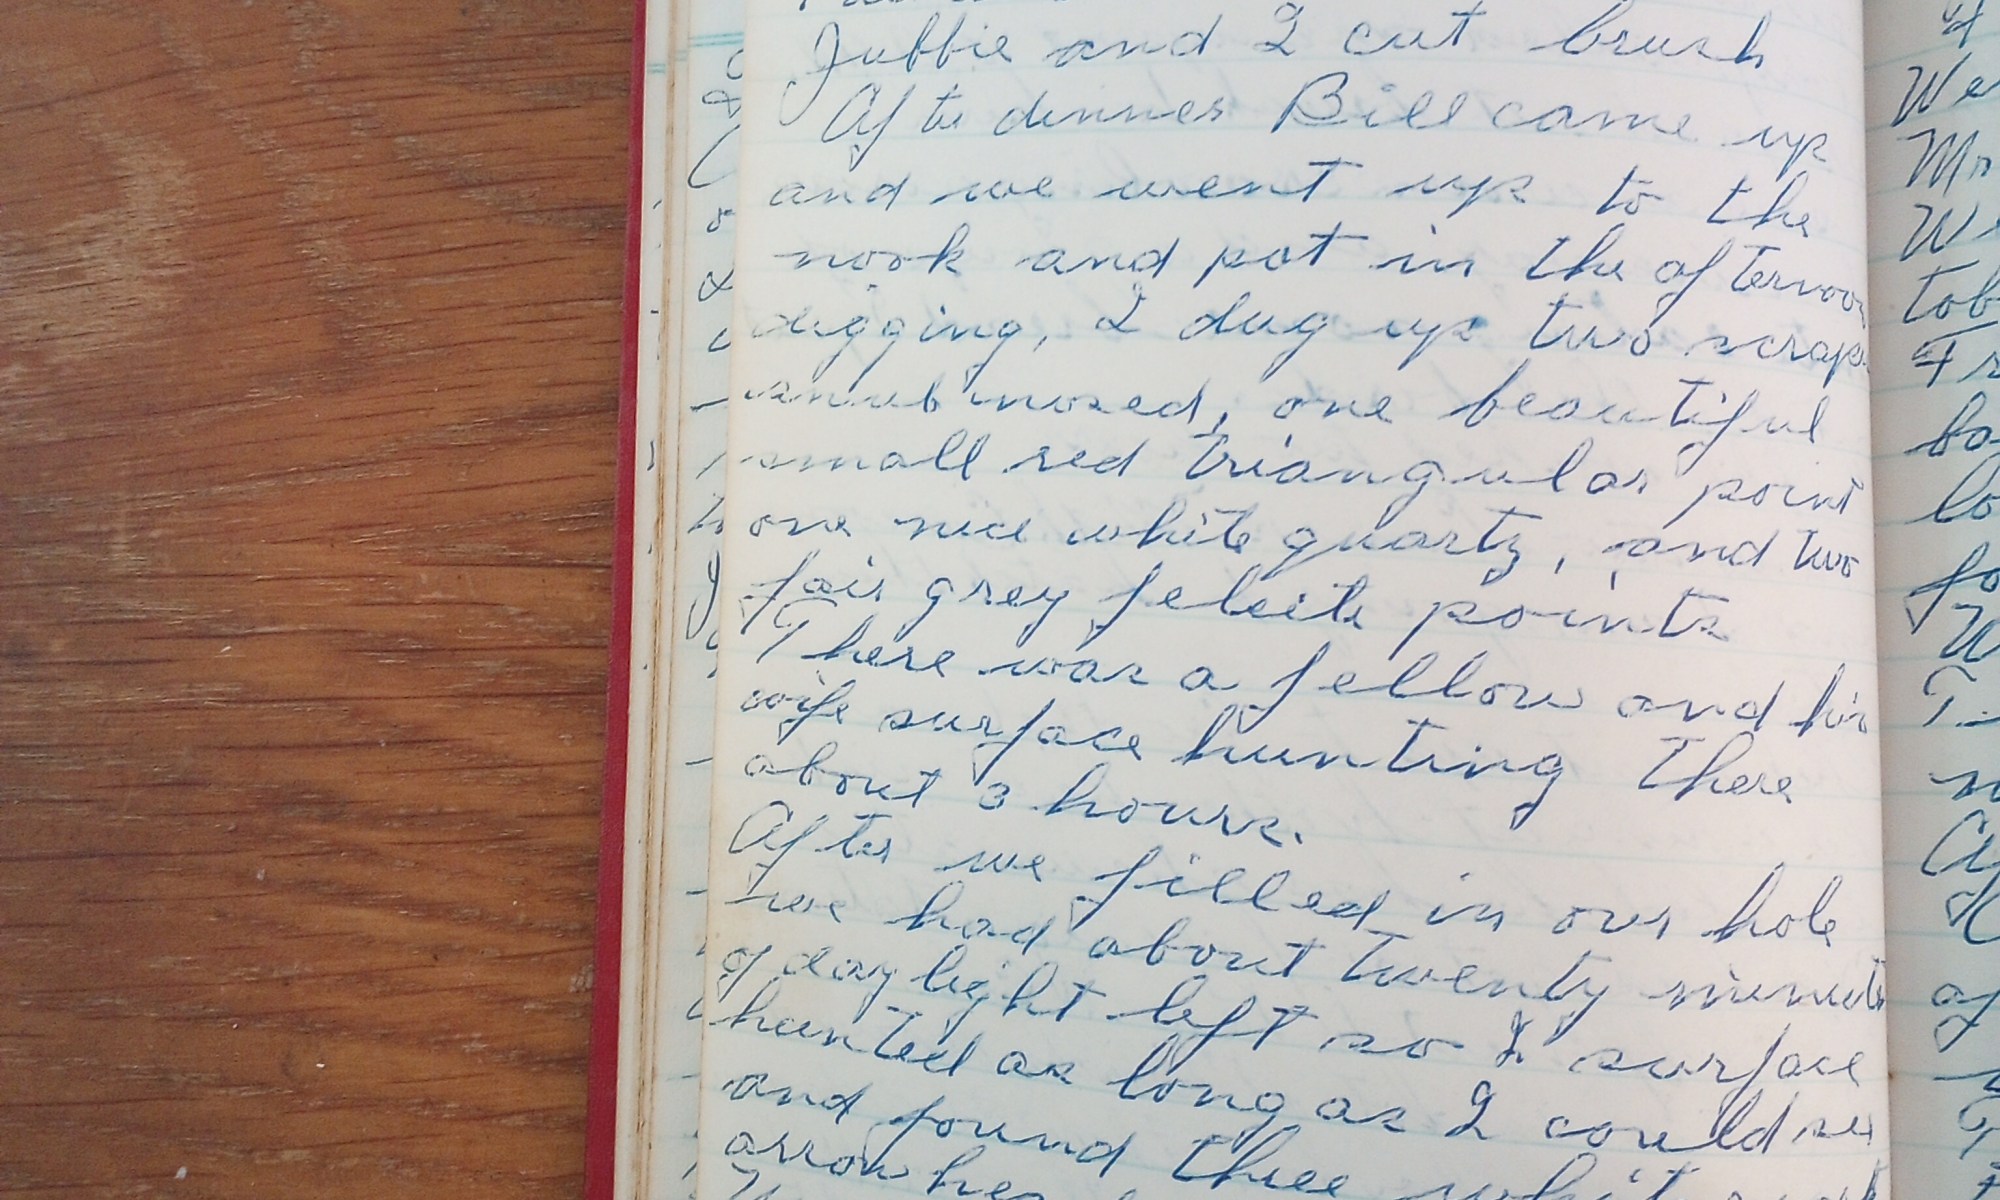 Jubbie and I cut brush
After dinner Bill came up
and we went up to the
nook and put in the afternoon
digging, I dug up two scrap
snub nosed, one beautiful
small red triangular point
one nice white quartz, and two
fair grey felsite points
There was a fellow and his
wife surface hunting there
about 3 hours.
After we filled in our hole
we had about twenty minuts
of day light left so I surface
hunted as long as I could see
and found three white
arrow
We
Mr
We
tob
Fr
ba
lo
fo
W
T
of